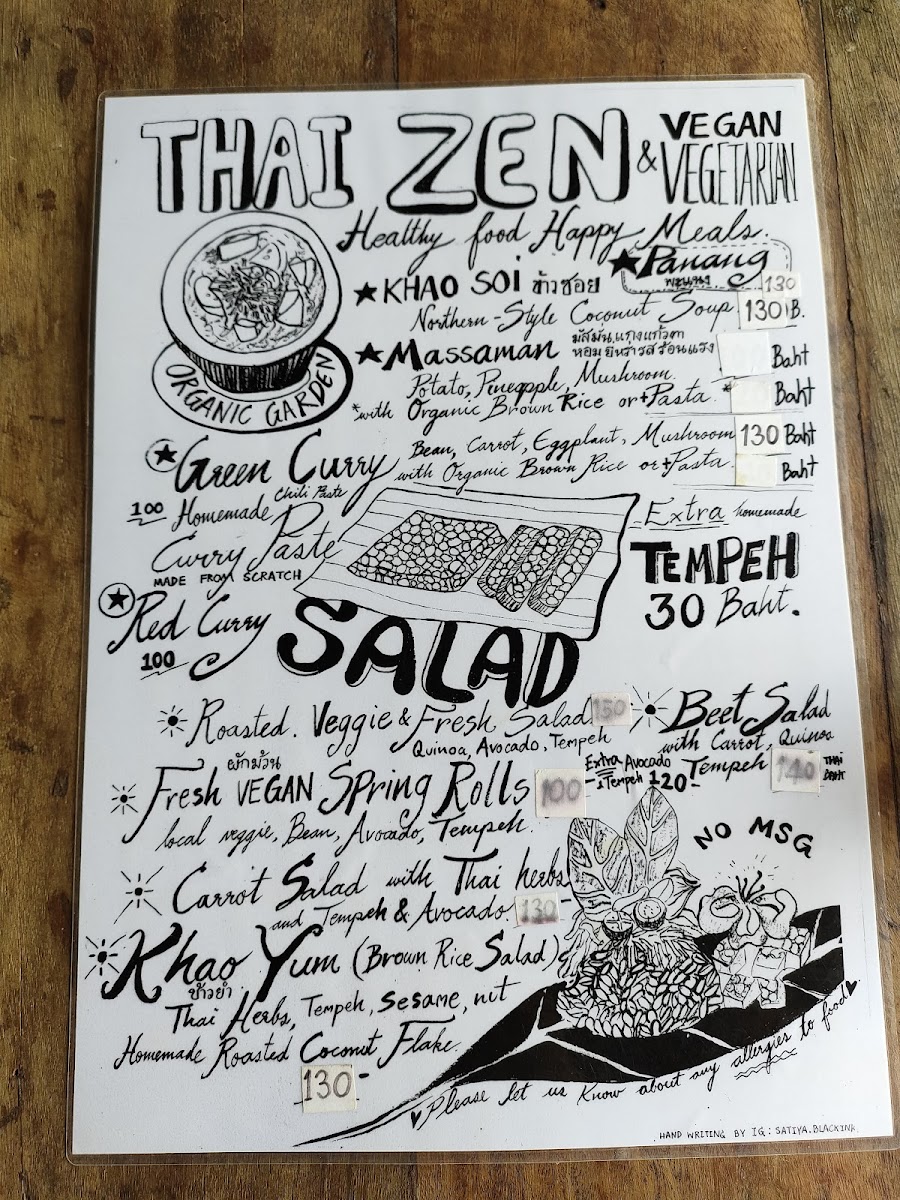 THAI ZEN & VEGAN VEGETARIAN
Healthy food Happy Meals.
★Panang
พะแนง 130
★KHAO SOI ข้าวซอย
Northern-Style Coconut Soup 130 B.
★Massaman มัสมั่น,แกงแก้วตา
หอมยี่หร่ารสร้อนแรง
Baht
Potato, Pineapple, Mushroom.
*with Organic Brown Rice or+Pasta.* Baht
ORGANIC GARDEN
★Green Curry Bean, Carrot, Eggplant, Mushroom 130 Baht
with Organic Brown Rice or+Pasta. Baht
100 Homemade Chili Paste
Curry Paste
MADE FROM SCRATCH
Extra homemade
TEMPEH
30 Baht.
★Red Curry
100
SALAD
Roasted Veggie & Fresh Salad 150
Quinoa, Avocado, Tempeh
Beet Salad
with Carrot, Quinoa
Tempeh 140 THAI BAHT
ผักม้วน
Fresh VEGAN Spring Rolls 100
Extra Avocado
Tempeh 120-
local veggie, Bean, Avocado, Tempeh.
NO MSG
Carrot Salad with Thai herbs
and Tempeh & Avocado. 130-
Khao Yum (Brown Rice Salad)
ข้าวยำ
Thai Herbs, Tempeh, Sesame, nut
Homemade Roasted Coconut Flake.
130-
♥Please let us know about any allergies to food♥
HAND WRITING BY IG: SATIYA.BLACKINK